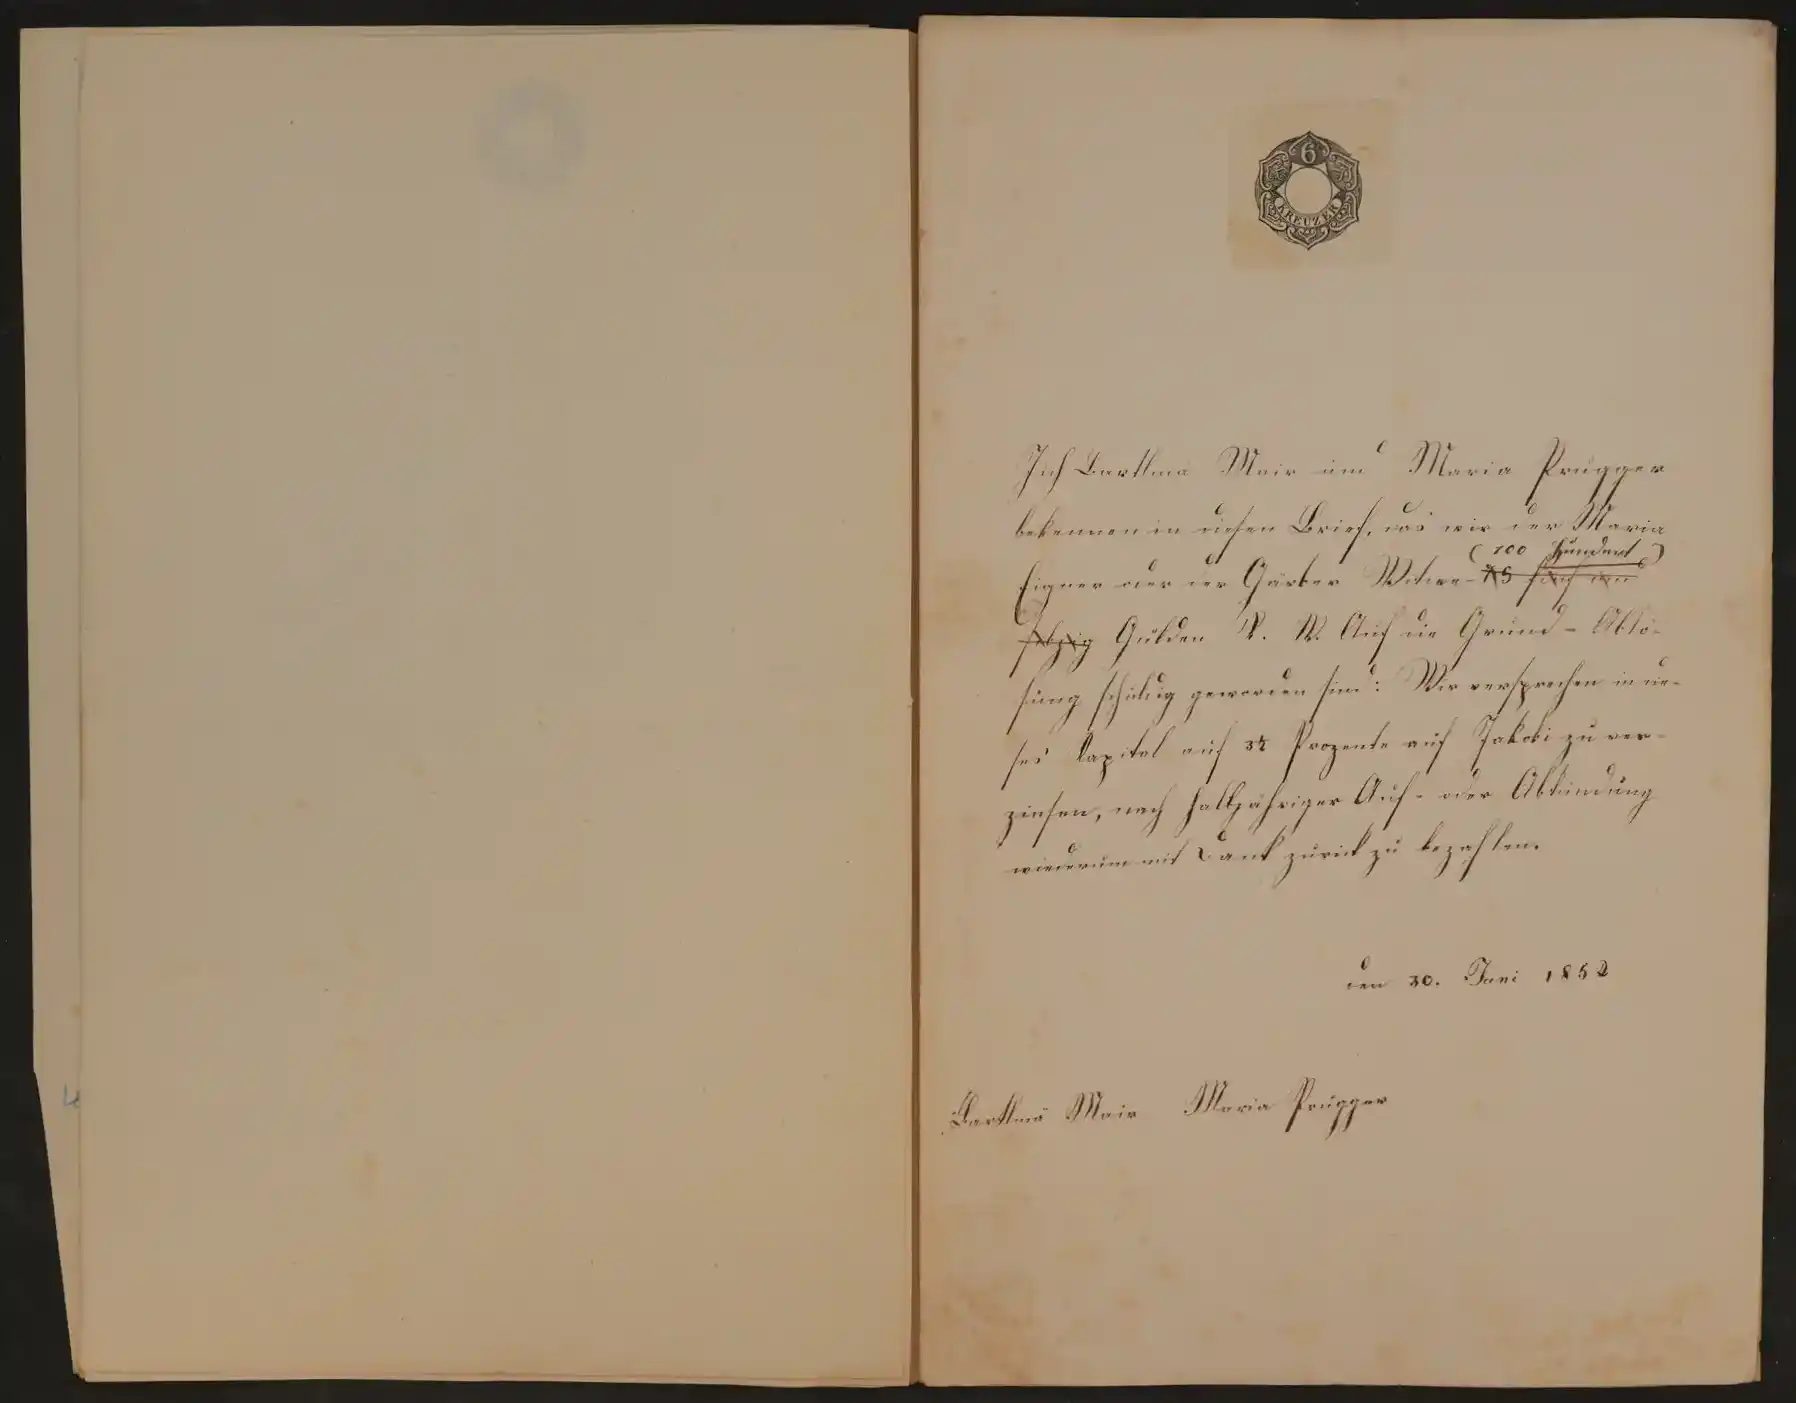 6
KREUZER
Ich Bartlmä Mair und Maria Prugger
bekennen in diesen Brief, das wir der Maria
(100 Hundert)
Eigner oder der Gärber Witwe - 75 fünf und
sibzig Gulden R. W. Auf die Grund - Ablö-
sung schuldig geworden sind: Wir versprechen in die-
ses Kapital auf Prozente auf Jakobi zu ver-
zinsen, nach halbjähriger Auf- oder Abkündung
wiederum mit Dank zurück zu bezahlen.
den 30. Juni 1852
Bartlmä Mair Maria Prugger